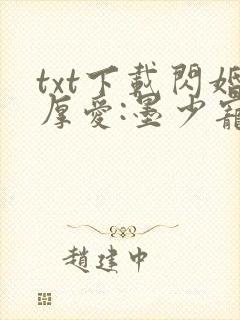 txt下載閃婚
厚愛:墨少寵
趙建中